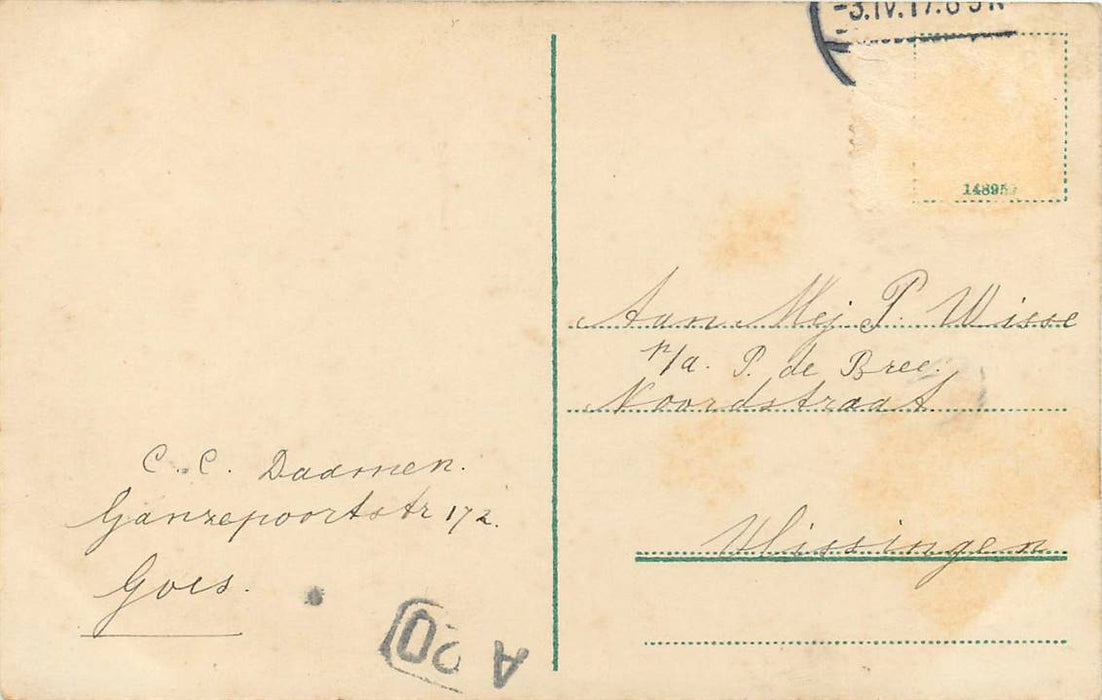 C. C. Daamen.
Ganzepoortstr 172.
Goes.
A
20
-3.IV.17.
14895
Aan Mej. P. Wisse
p/a. P. de Bree.
Noordstraat
Vlissingen